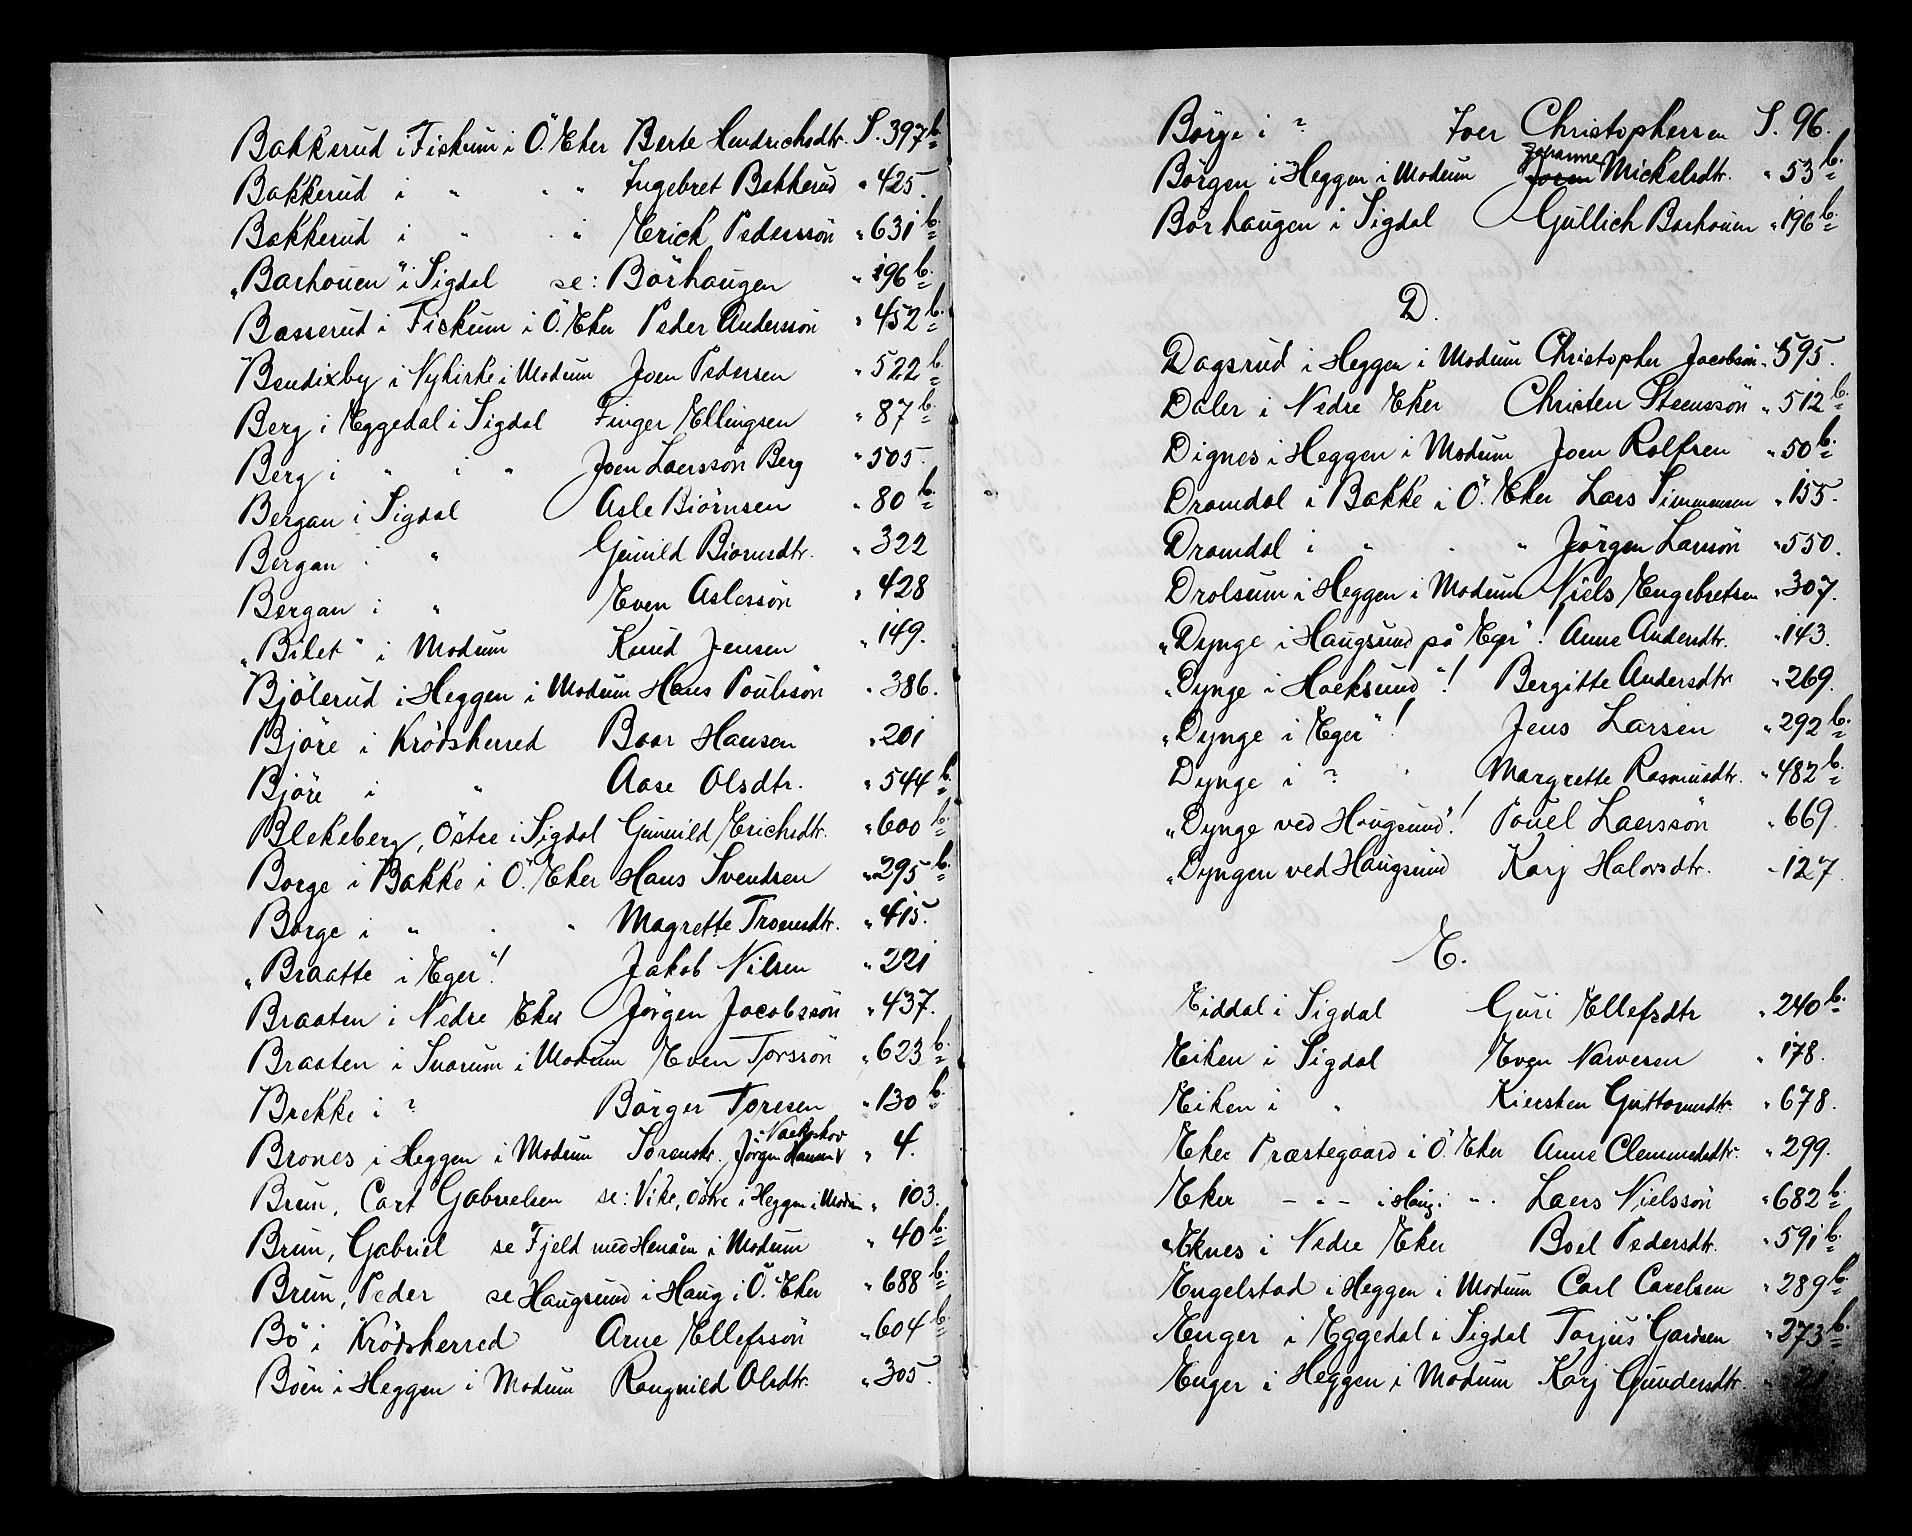 Bakkerud i Fiskum i Ö. Eker Berte Hendrichsdtr. S. 397 b.
Bakkerud i " " " Ingebret Bakkerud " 425.
Bakkerud i " " " Erich Pederssön " 631 b.
"Barhouen" i Sigdal se: Börhaugen " 196 b.
Basserud i Fiskum i Ö. Eker Peder Anderssön " 452 b.
Bendixby i Nykirke i Modum Joen Pedersen " 522 b.
Berg i Eggedal i Sigdal Finger Ellingsen " 87 b.
Berg i " i " Joen Laersson Berg " 505.
Bergan i Sigdal Asle Biörnsen " 80 b.
Bergan i " Gunild Biörnsdtr. " 322
Bergan i " Even Aslessön " 428
"Bilet" i Modum Knud Jensen " 149.
Bjölerud i Heggen i Modum Hans Poulssön " 386.
Björe i Krödsherred Baar Hansen " 201
Björe i " Aase Olsdtr. " 544 b.
Blekeberg, Östre i Sigdal Gunnild Erichsdtr. " 600 b.
Borge i Bakke i Ö. Eker Hans Svendsen " 295 b.
Borge i " " " Magrette Troensdtr. " 415.
"Braatte i Eger"! Jakob Nilsen " 221
Braaten i Nedre Eker Jörgen Jacobssön " 437.
Braaten i Snarum i Modum Even Torssön " 623 b.
Brekke i ? Börger Toresen " 130 b.
Brones i Heggen i Modum Sörenstr. Jörgen Hansen Naekskov " 4.
Brun, Cart Gabrielsen se: Vike, Östre i Heggen i Modum " 103.
Brun, Gabriel se Fjeld med Henåm i Modum " 40 b.
Brun, Peder se Haugsund i Haug i Ö. Eker " 688 b.
Bö i Krödsherred Arne Ellefssön " 604 b.
Böen i Heggen i Modum Rangnild Olsdtr. " 305.
Börge i ? Joer Christophersen S. 96.
Börgen i Heggen i Modum Joren Johanne Mickelsdtr. " 53 b.
Börhaugen i Sigdal Gullich Barhouen " 196 b.
D.
Dagsrud i Heggen i Modum Christopher Jacobsön. S 595.
Daler i Nedre Eker Christen Steenssön " 512 b.
Dignes i Heggen i Modum Joen Rolfsen " 50 b.
Dramdal i Bakke i Ö. Eker Lars Simmensen " 155.
Dramdal i " " " Jörgen Larsön " 550.
Drolsum i Heggen i Modum Niels Engebretsen " 307.
"Dynge i Haugsund på Eger"! Anne Andersdtr. " 143.
"Dynge i Hoeksund"! Bergitte Andersdtr " 269.
"Dynge i Eger"! Jens Larsen " 292 b.
Dynge i ? Margrette Rasmusdtr. " 482 b.
"Dynge ved Hougsund"! Pouel Laerssön " 669.
"Dyngen ved Haugsund Karj Halvorsdtr. " 127.
E.
Eiddal i Sigdal Guri Ellefsdtr " 240 b.
Eiken i Sigdal Even Narvesen " 178.
Eiken i " Kiersten Guttormsdtr. " 678.
Eker Præstegaard i Ö. Eker Anne Clemmedsdtr. " 299.
Eker - " - i Haug i " " Laers Nielssön " 682 b.
Eknes i Nedre Eker Boel Pedersdtr. " 591 b.
Engelstad i Heggen i Modum Carl Carelsen " 289 b.
Enger i Eggedal i Sigdal Torjus Gardsen " 273 b.
Enger i Heggen i Modum Karj Gundersdtr. "